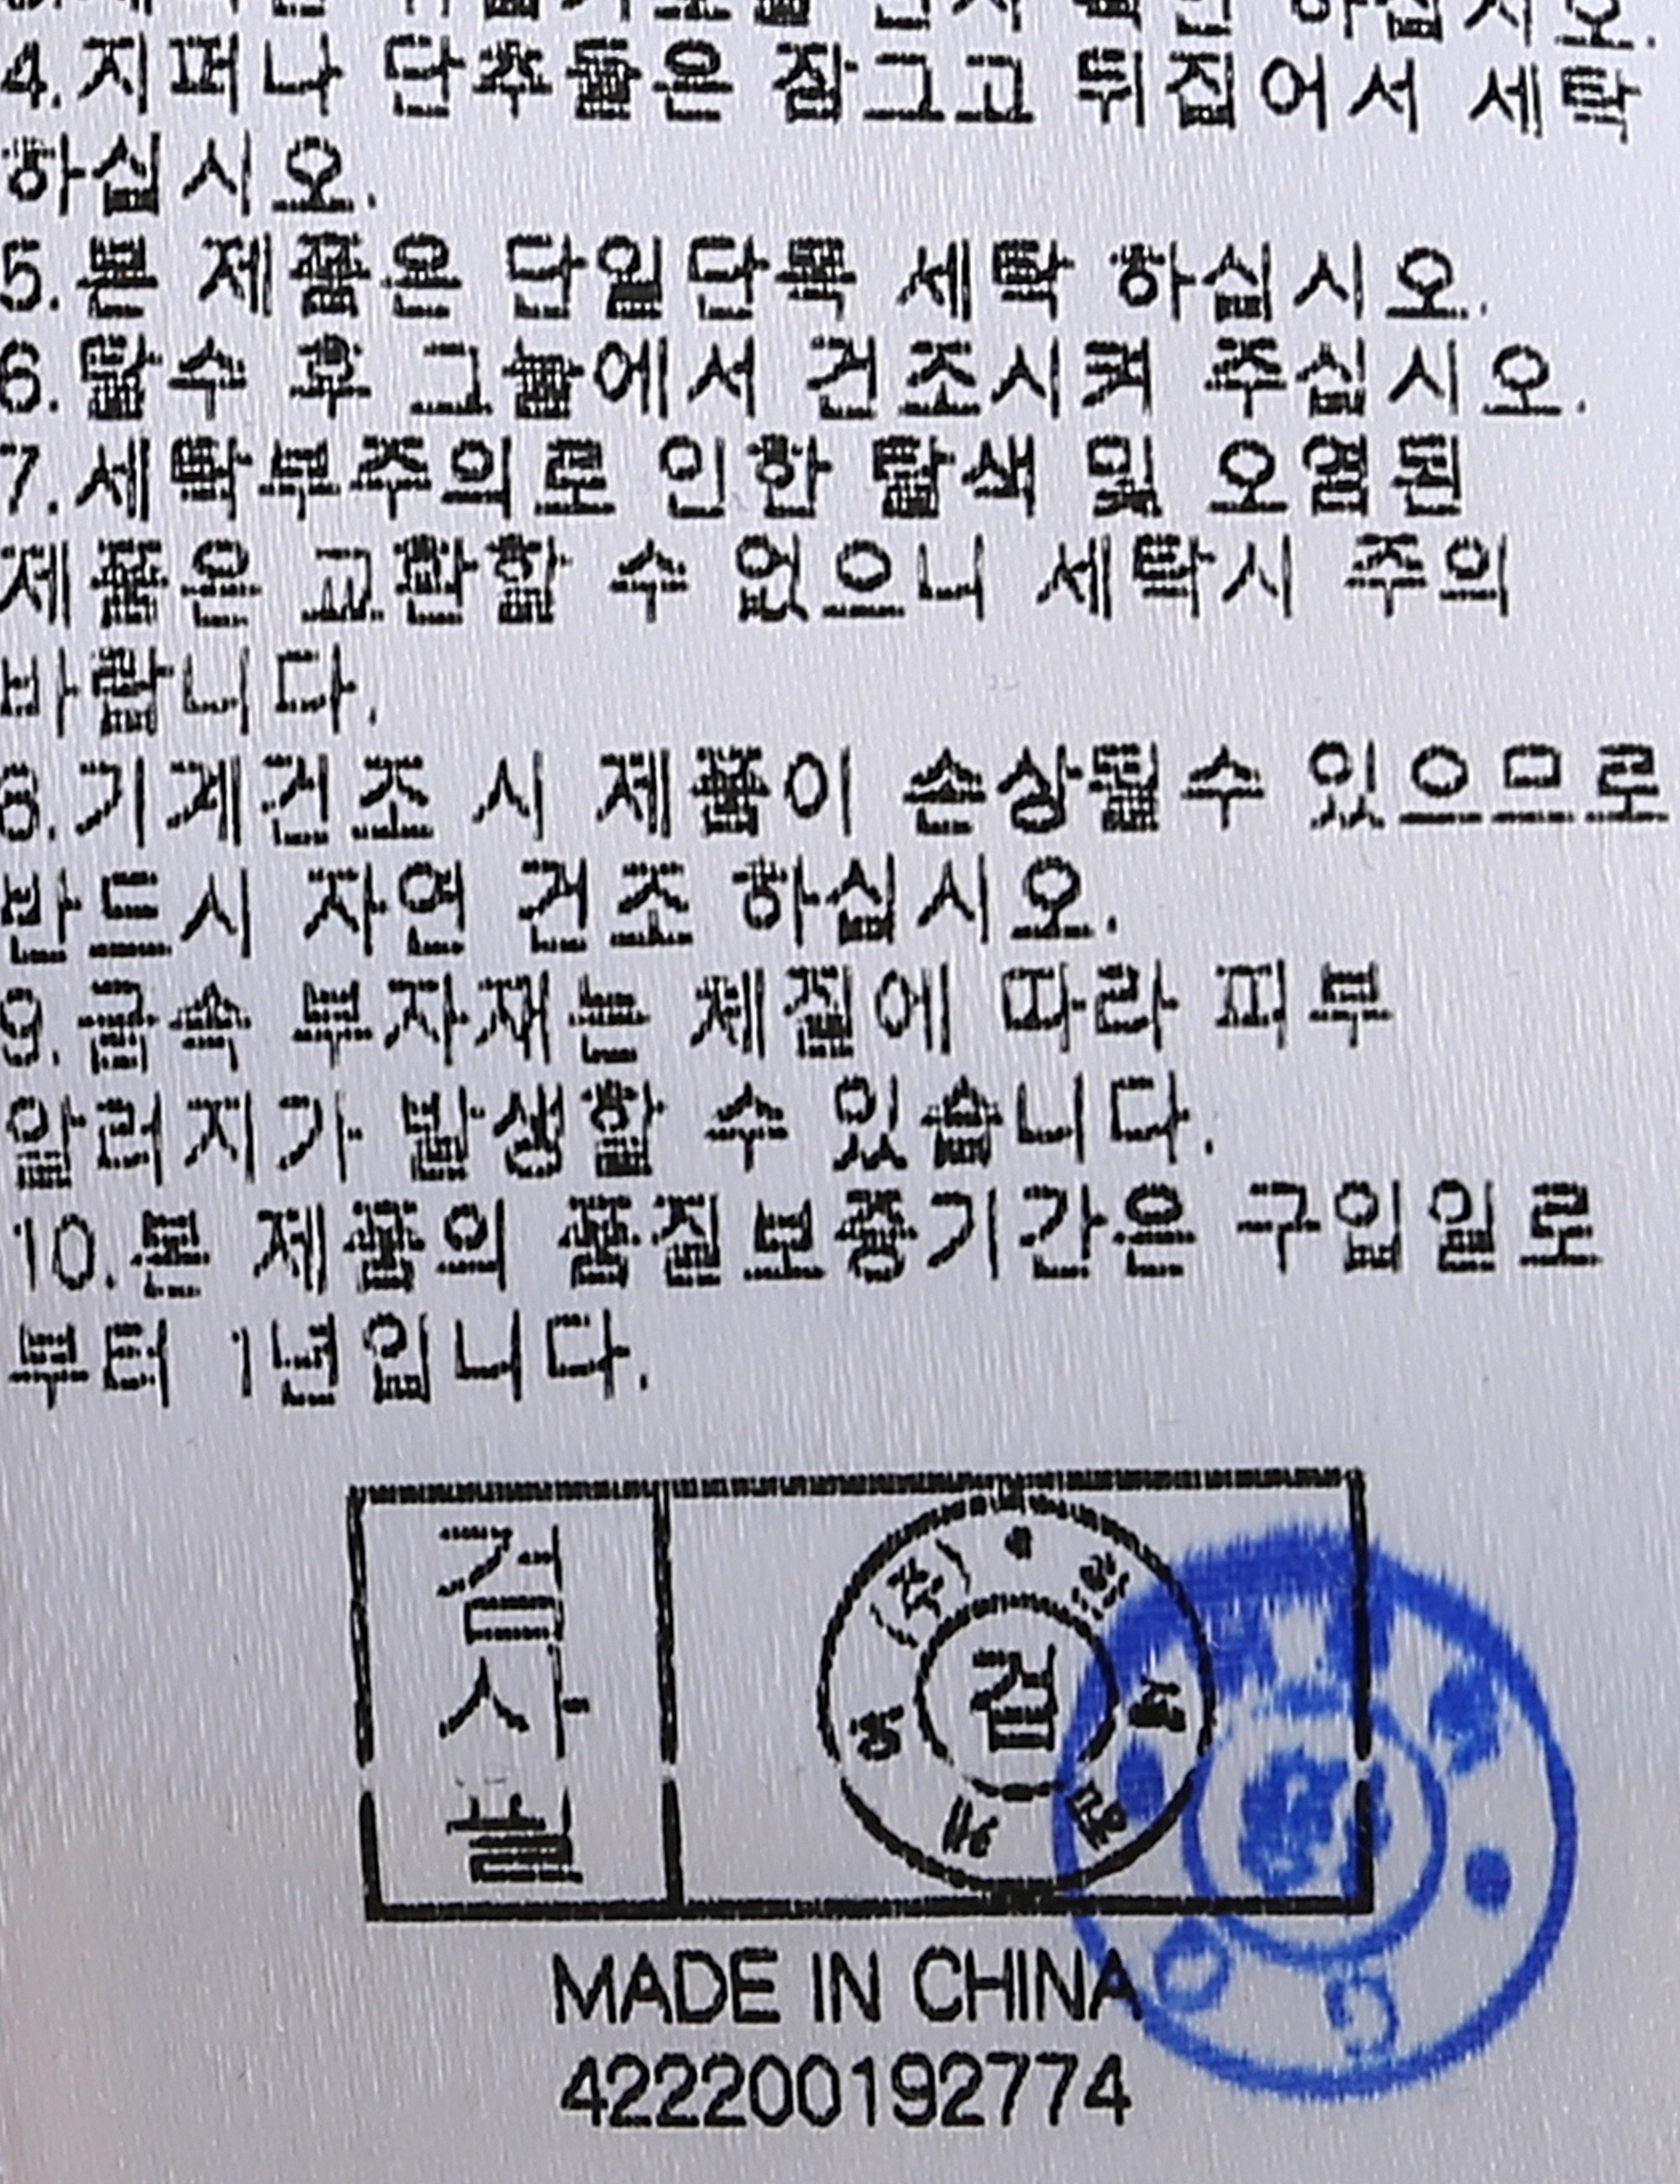 하십시오.
4.지퍼나 단추들은 잠그고 뒤집어서 세탁
하십시오.
5.본 제품은 단일단독 세탁 하십시오.
6.탈수 후 그늘에서 건조시켜 주십시오.
7.세탁부주의로 인한 탈색 및 오염된
제품은 교환할 수 없으니 세탁시 주의
바랍니다.
8.기계건조 시 제품이 손상될수 있으므로
반드시 자연 건조 하십시오.
9.금속 부자재는 체질에 따라 피부
알러지가 발생할 수 있습니다.
10.본 제품의 품질보증기간은 구입일로
부터 1년입니다.
검사필
검
(주)
MADE IN CHINA
422200192774